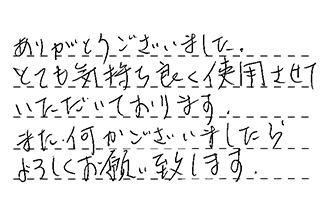 ありがとうございました.
とても気持ち良く使用させて
いただいております.
また何かございましたら
よろしくお願い致します.